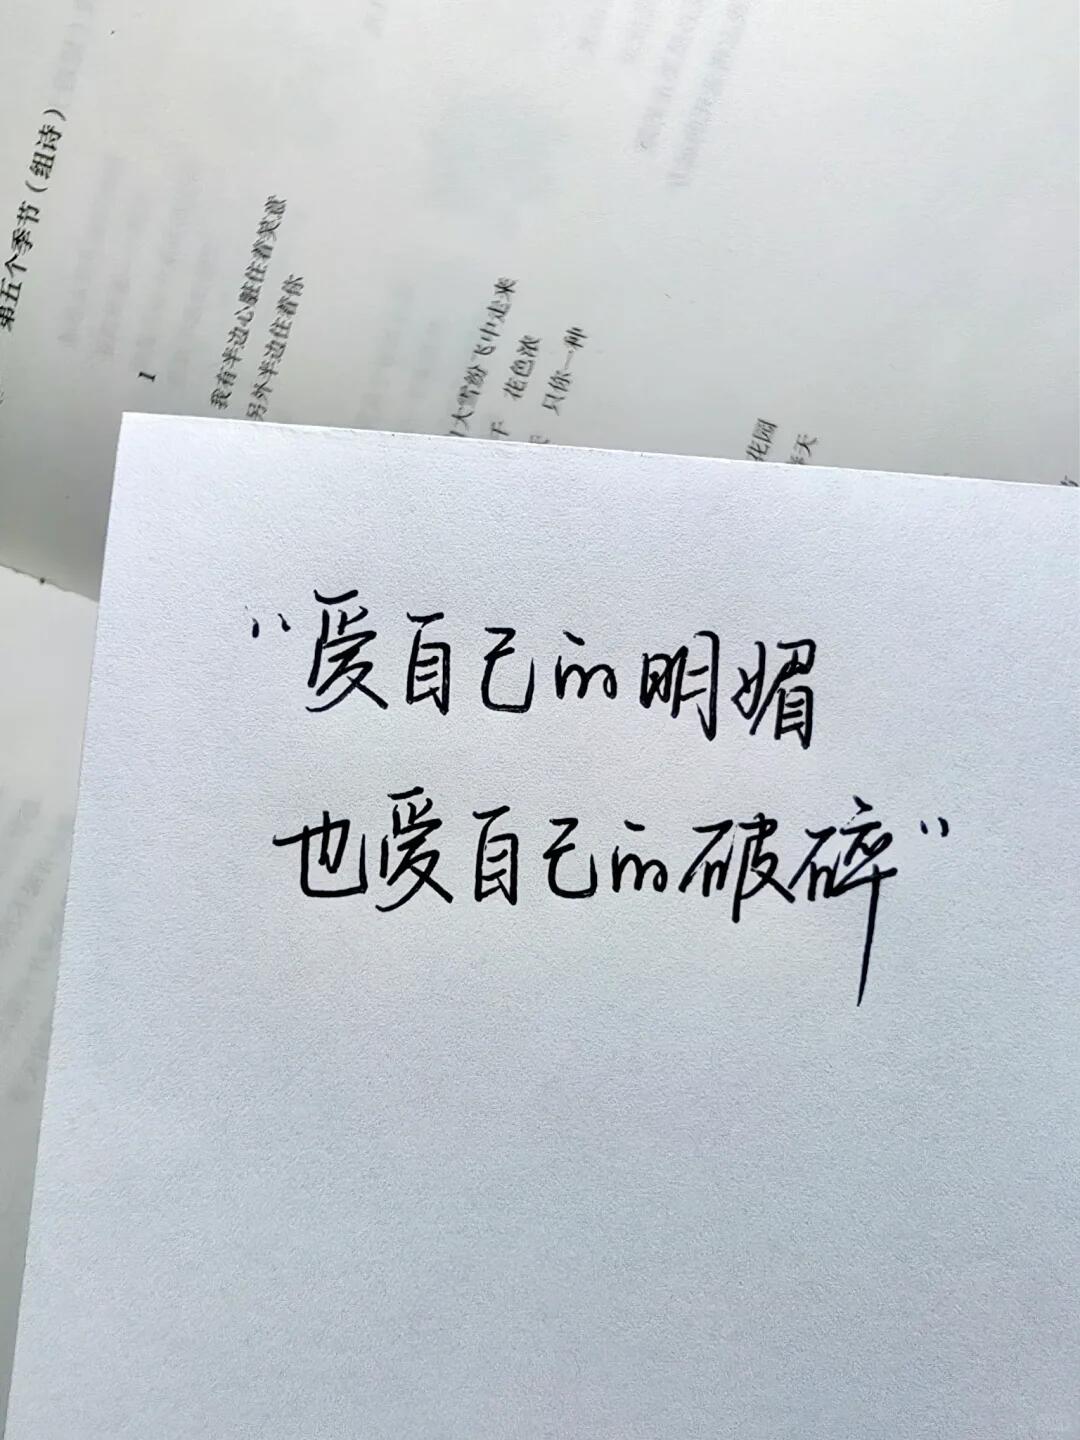 第五个季节（组诗）
1
我有半边心脏住着
另外半边住着你
大雪纷飞中走来
花色浓
只你一种
花园
天
“爱自己的明媚
也爱自己的破碎”